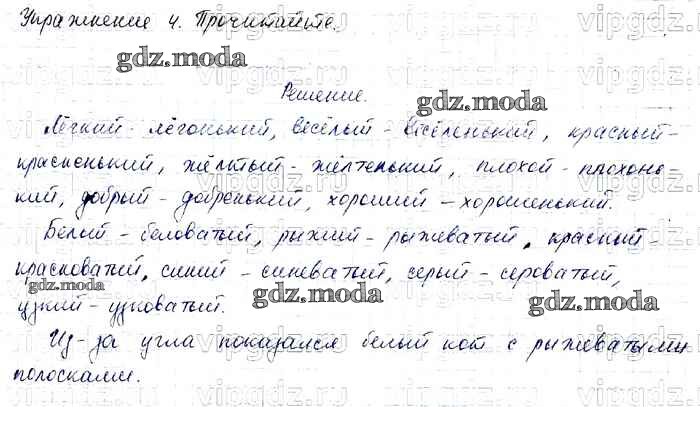 Упражнение 4. Прочитайте.
Решение.
Лёгкий - лёгонький, весёлый - весёленький, красный -
красненький, жёлтый - жёлтенький, плохой - плохонь
кий, добрый - добренький, хороший - хорошенький.
Белый - беловатый, рыжий - рыжеватый, красный -
красноватый, синий - синеватый, серый - сероватый,
узкий - узковатый.
Из-за угла показался белый кот с рыжеватыми
полосками.
gdz.moda
gdz.moda
gdz.moda
gdz.moda
gdz.moda
vipgdz.ru